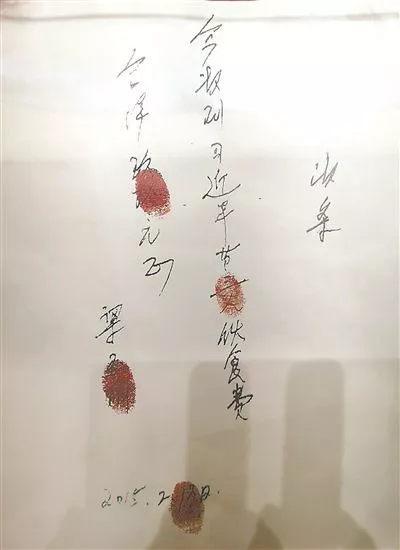 收条
今收到习近平交伙食费
合洋元正
梁
2015.2.13日.